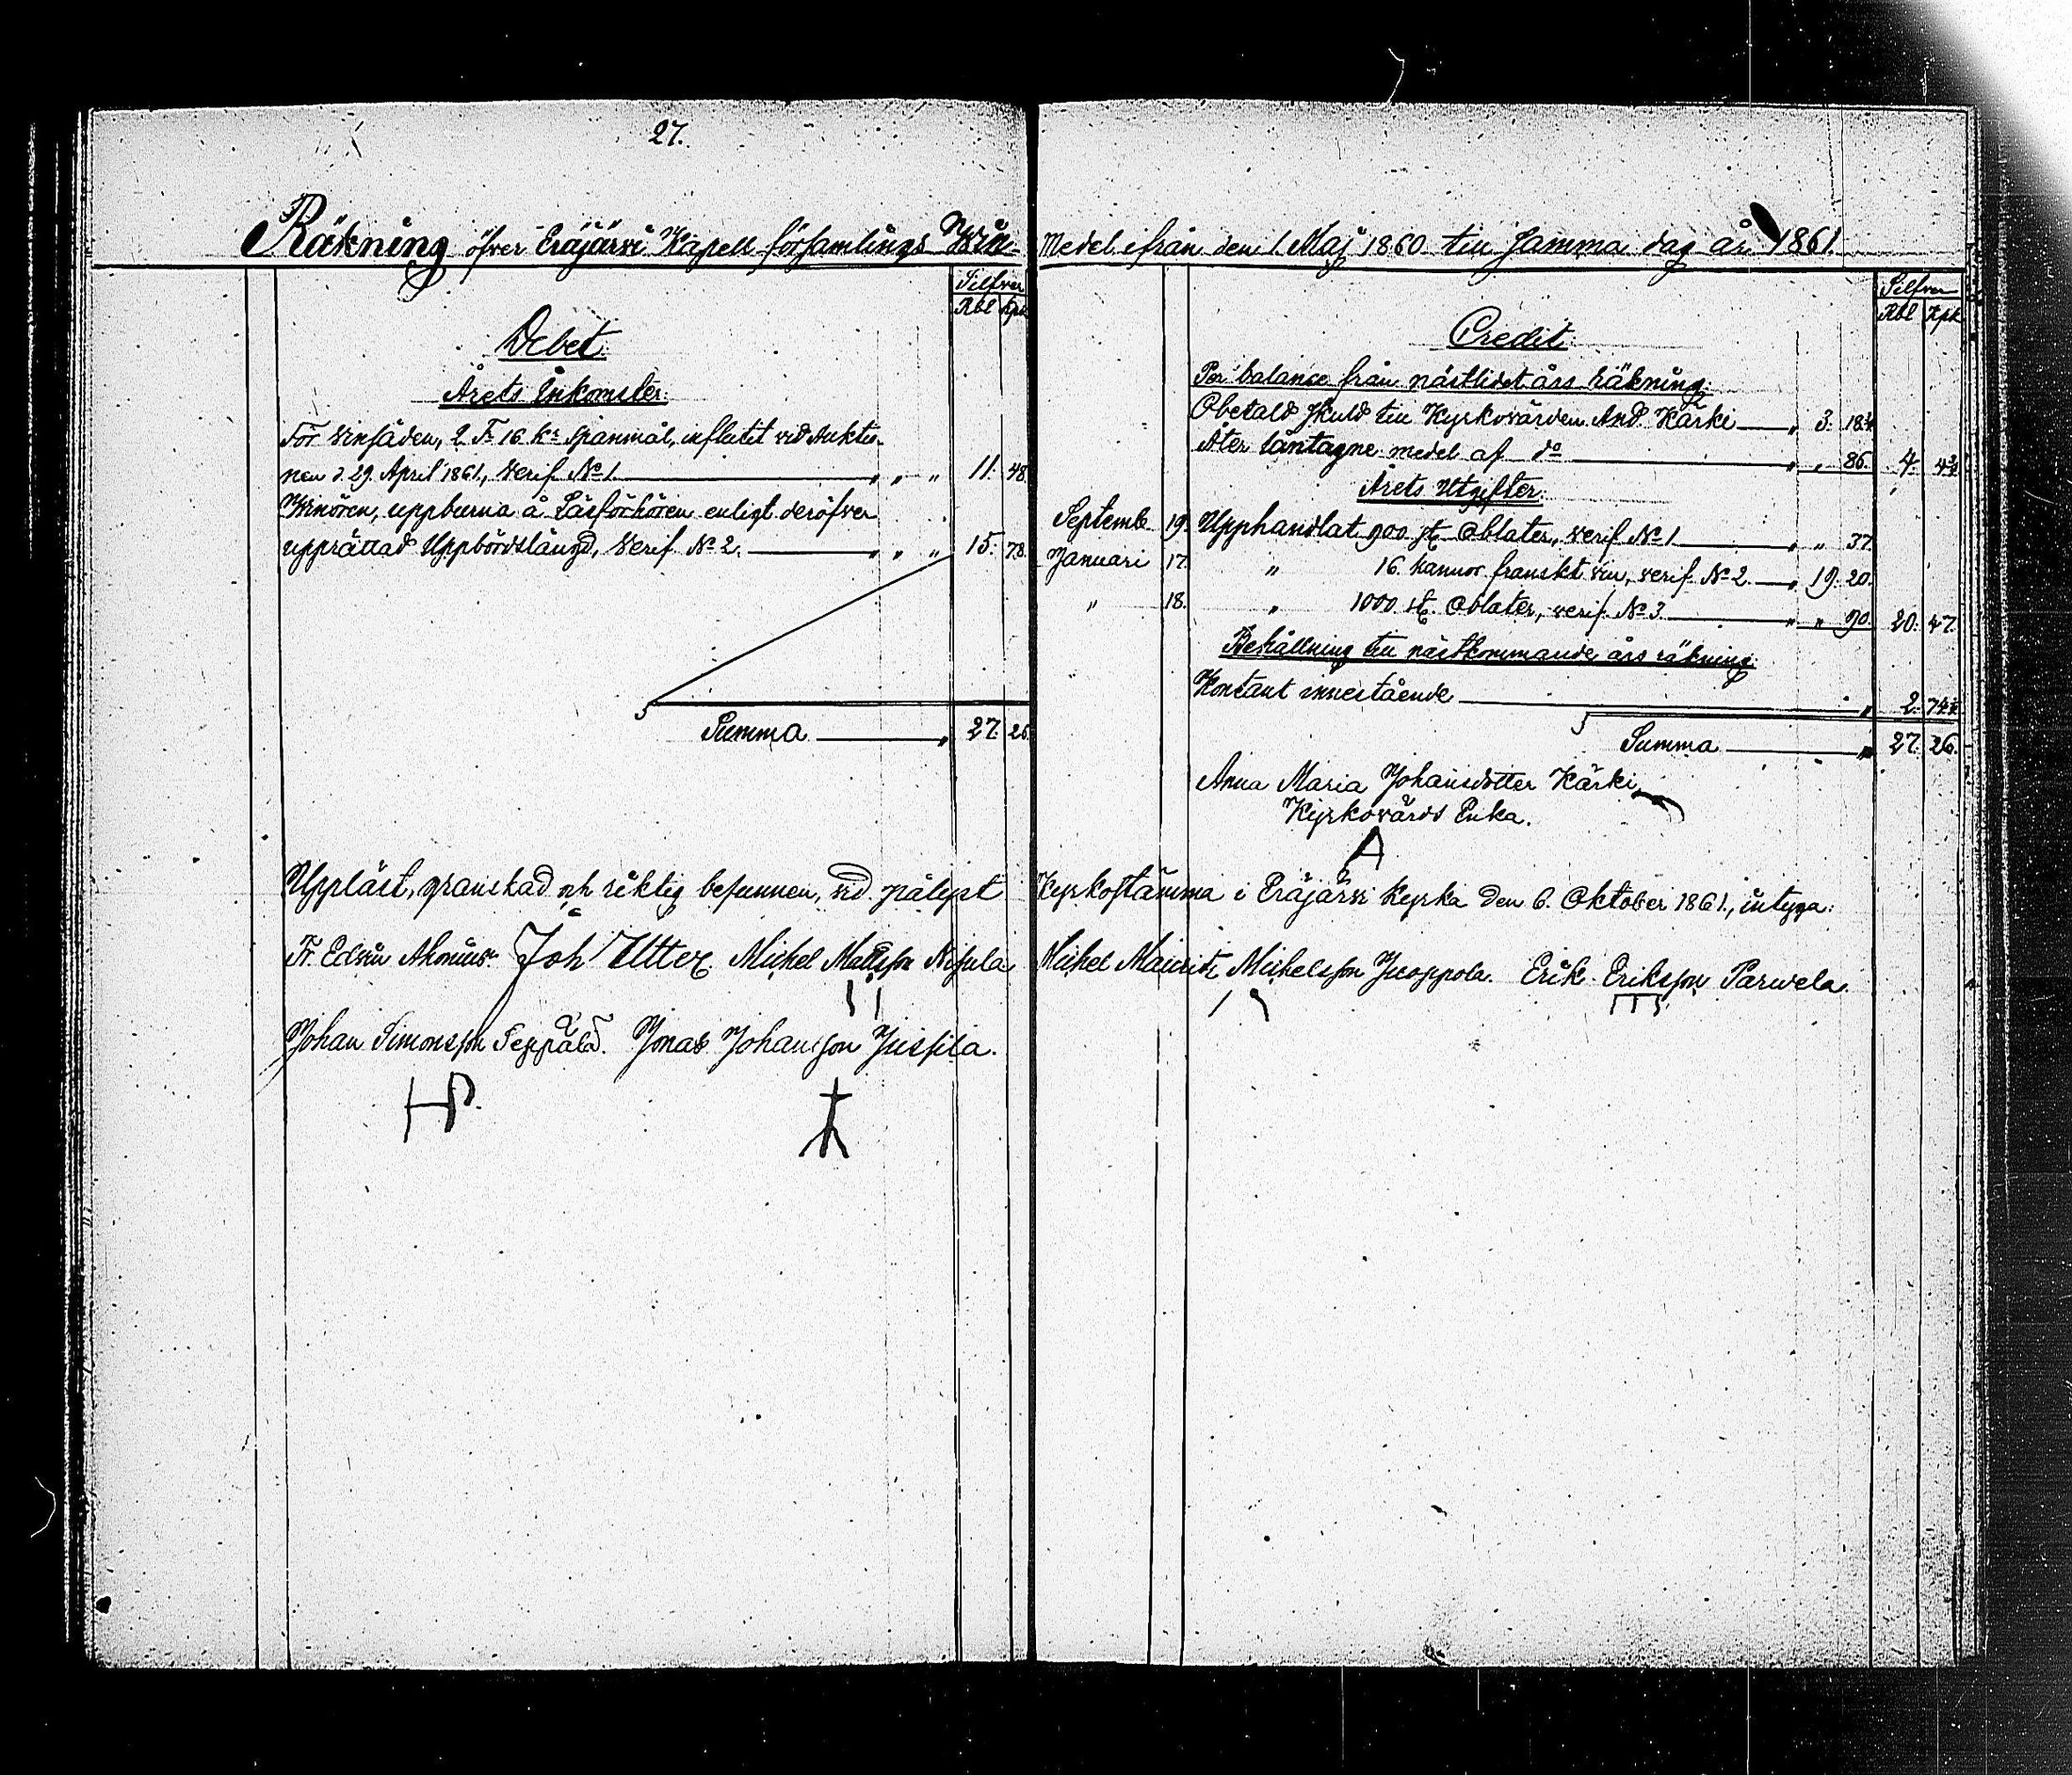 27.
Räkning öfver Eräjärvi Kapell församlings Win-
Silfver
Rbl Kpk
Debet.
Årets Inkomster.
För vinsäden, 2 Tr 16 kr Spanmål, influtit vid Auktio-
nen d. 29 April 1861, Verif. No 1. " " " 11. 48.
Winören, uppburna å Läsförhören enligt deröfver
upprättad Uppbördslängd, Verif. No 2. " " " 15. 78.
Summa " 27. 26.
Medel ifrån den 1. Maj 1860 till samma dag år 1861.
Silfver
Rbl Kpk
Credit.
Per balance från nästlidet års räkning.
Obetald skuld till Kyrkovärden And. Kärki " 3. 18 3/4
Åter låntagne medel af do " " 86. 4. 4 3/4
Årets Utgifter.
Septemb. 19. Upphandlat 900 st. Oblater, verif. No 1 " " 37.
Januari 17. " 16. kannor franskt vin, verif. No 2. " 19. 20.
" 18. " 1000 st. Oblater, verif. No 3. " " 90. 20. 47.
Behållning till nästkommande års räkning.
Kontant innestående " 2. 74 1/4
Summa " 27. 26.
Anna Maria Johansdotter Kärki
Kyrkovärds Enka.
Uppläst, granskad och riktig befunnen, vid pålyst Kyrkostämma i Eräjärvi Kyrka den 6. Oktober 1861., intyga:
Fr. Edvin Ahonius. Joh Utter. Michel Mattsson Nisula Michel Mauritz Michelsson Juoppola. Erik Eriksson Parvela.
Johan Simonsson Seppälä. Jonas Johansson Jussila.